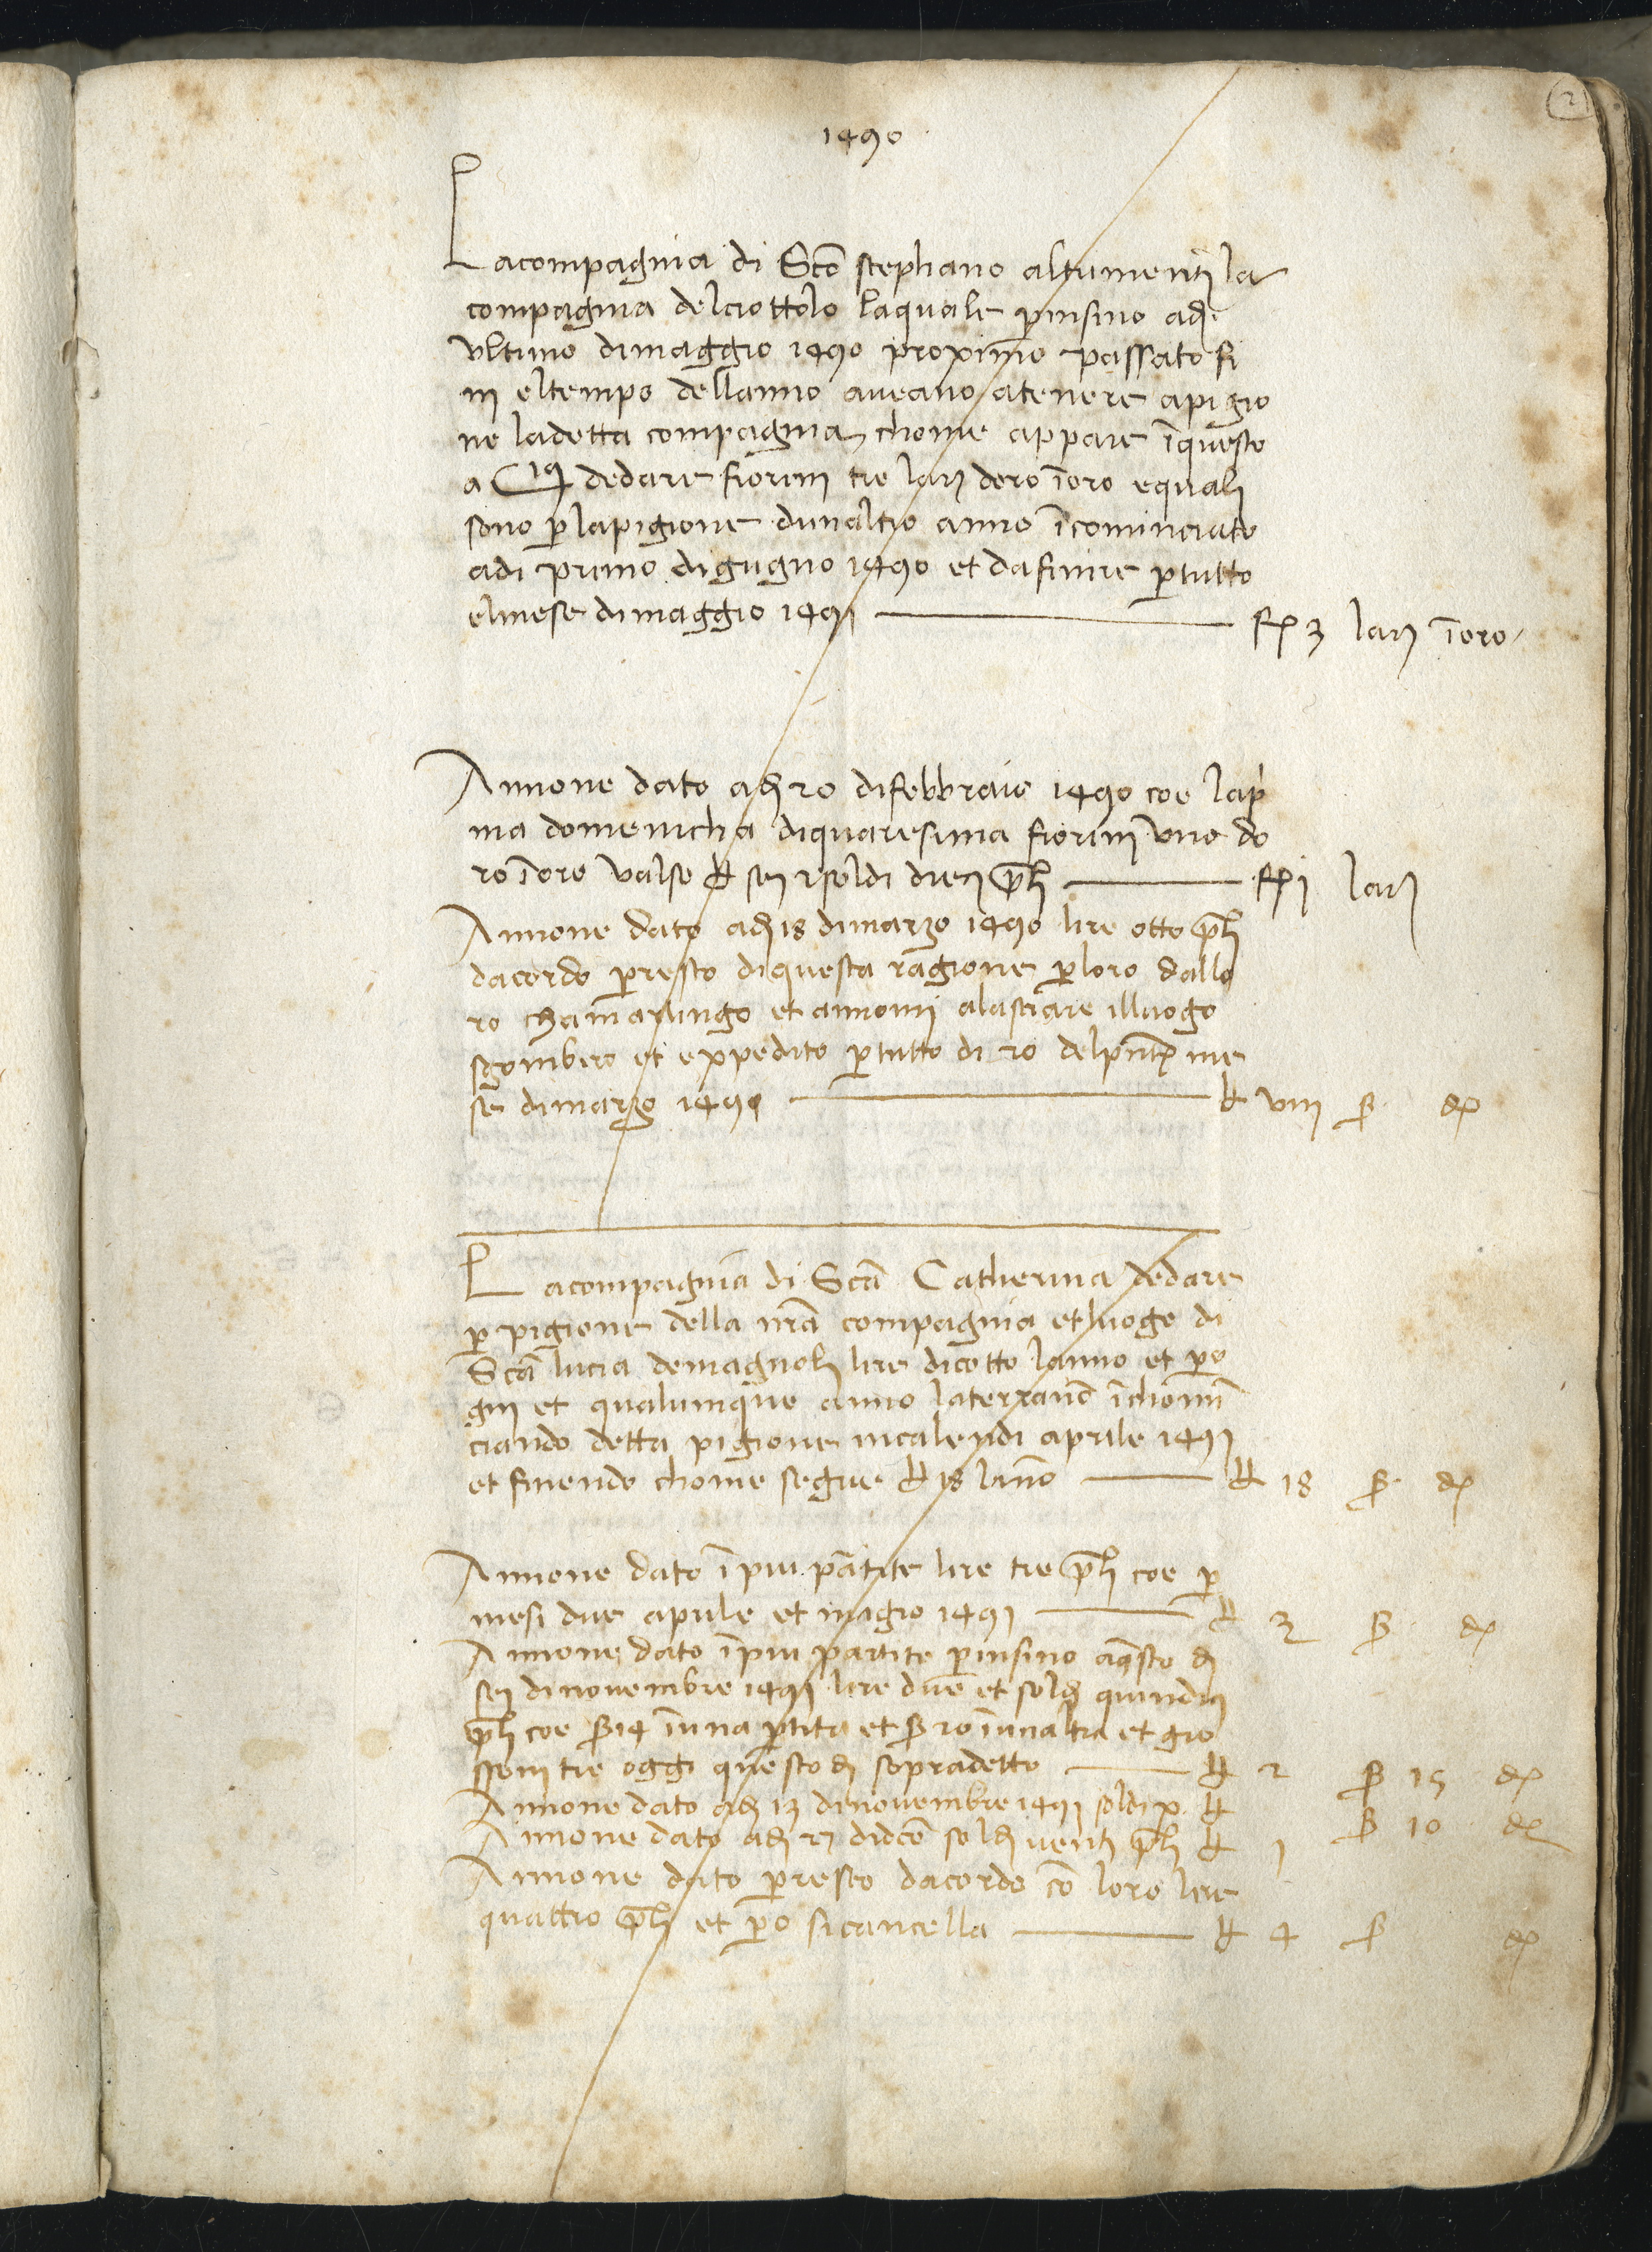 2
1490
Lacompagnia di Sc̃o stephano altrimenti la
compagnia delciottolo laquale p̱insino adi
ultimo dimaggio 1490 proximo passato fi
ni eltempo dellanno aveano atenere apigio
ne ladetta compagnia chome appare ĩquesto
a dedare fiorini tre larj doro ĩoro equali
sono p̱ lapigione dunaltro anno ĩcominciato
adi primo digugno 1490 et dafinire p̱tutto
elmese dimaggio 1491 fl 3 larj ĩoro
Annone dato adj 20 difebbraio 1490 coe lapi
ma domenicha diquaresima fiorini uno do
ro ĩoro valse £ sej soldi diecj p̱lj fl i larj
Annone dato adj 18 dimarzo 1490 lire otto p̱lj
dacordo p̱resto diquesta ragione p̱loro dallo
ro chamarlingo et annomj alasciare illuogo
sgombero et expedito p̱tutto di 20 delp̱nte me
se dimarzo 1490 £ viii ß d
Lacompagnia di Sc̃a Catherina dedare
p̱ pigione della nr̃a compagnia et luogo di
Sc̃a lucia demagnolj lire diciotto lanno et p̱ o
gni et qualunque anno laterranõ ĩchomĩ
ciando detta pigione incalendi aprile 1491
et finendo chome segue £ 18 lanno £ 18 ß d
Annone dato ĩpiu partite lire tre p̱lj coe p̱
mesi due aprile et magio 1491 £ 3 ß d
Annone dato ĩpiu partite p̱insino aq̃sto dj
sej dinovembre 1491 lire due et soldj quindicj
p̱lj coe ß 14 ĩuna p̱tita et ß 20 ĩunaltra et gro
ssoni tre oggi questo dj sopradetto £ 2 ß 15 d
Annone dato adj 13 dinovembre 1491 soldi x £ ß 10 d
Annone dato adj 27 didcẽ soldj ventj p̱lj £ 1
Annone dato p̱resto dacordo cõ loro lire
quattro p̱lj et p̱o sicancella £ 4 ß d